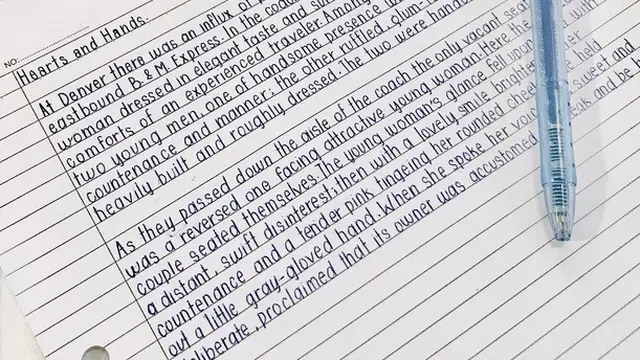 NO.
Hearts and Hands.
At Denver there was an influx of
eastbound B. & M Express. In the coach
woman dressed in elegant taste and sur
comforts of an experienced traveler. Among
two young men, one of handsome presence
countenance and manner; the other ruffled, glum-
heavily built and roughly dressed. The two were handc
As they passed down the aisle of the coach the only vacant seat
was a reversed one facing attractive young woman. Here the
couple seated themselves. The young woman's glance fell upon with
a distant, swift disinterest; then with a lovely smile brighter her
countenance and a tender pink tingeing her rounded cheeks held
out a little gray-gloved hand. When she spoke her voice sweet and
deliberate, proclaimed that its owner was accustomed speak and be h